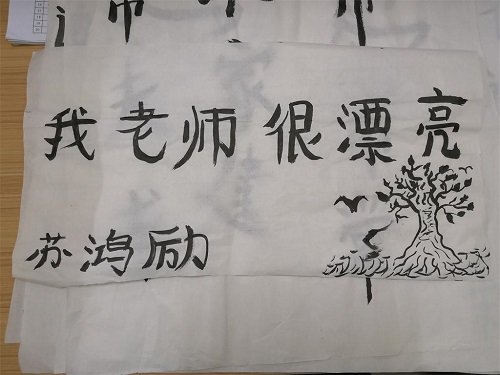 我老师很漂亮
苏鸿励